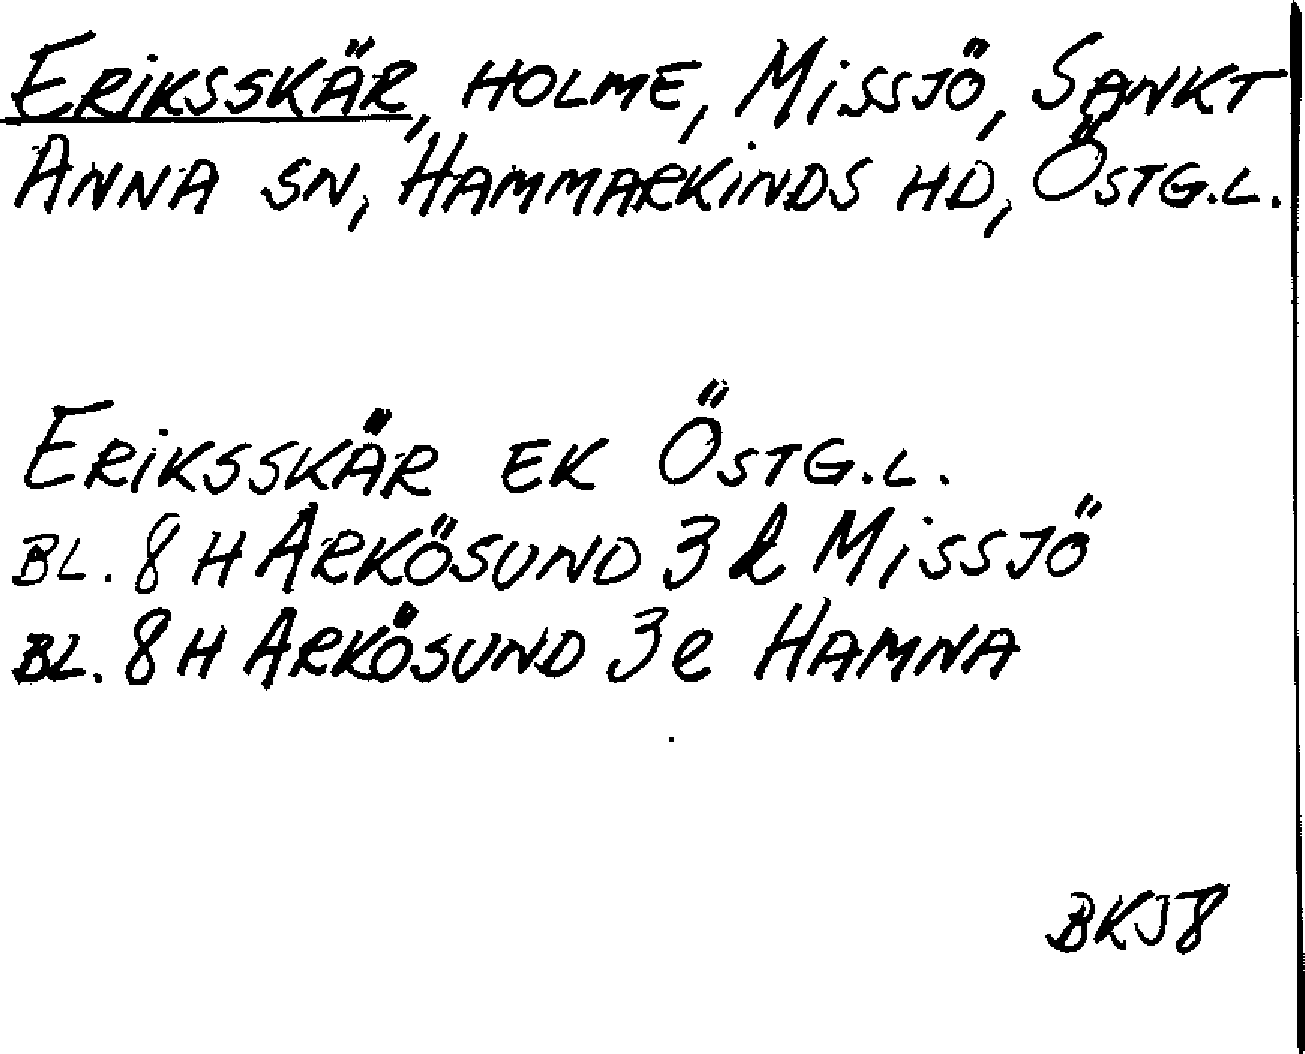 ERIKSSKÄR, HOLME, MISSJÖ, SANKT
ANNA SN, HAMMARKINDS HD, ÖSTG.L.
ERIKSSKÄR EK ÖSTG.L.
BL. 8 H ARKÖSUND 3 d MISSJÖ
BL. 8 H ARKÖSUND 3 e HAMNA
BKJ8